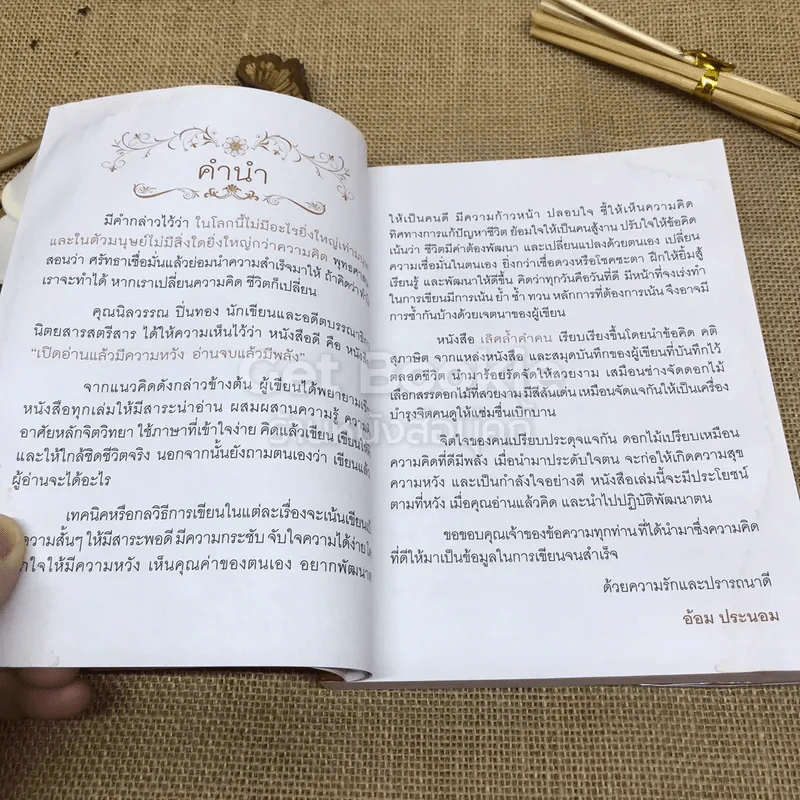 คำนำ
มีคำกล่าวไว้ว่า ในโลกนี้ไม่มีอะไรยิ่งใหญ่เท่ามนุษย์
และในตัวมนุษย์ไม่มีสิ่งใดยิ่งใหญ่กว่าความคิด พุทธศาสนา
สอนว่า ศรัทธาเชื่อมั่นแล้วย่อมนำความสำเร็จมาให้ ถ้าคิดว่า
เราจะทำได้ หากเราเปลี่ยนความคิด ชีวิตก็เปลี่ยน
คุณนิลวรรณ ปิ่นทอง นักเขียนและอดีตบรรณาธิการ
นิตยสารสตรีสาร ได้ให้ความเห็นไว้ว่า หนังสือดี คือ หนังสือ
“เปิดอ่านแล้วมีความหวัง อ่านจบแล้วมีพลัง”
จากแนวคิดดังกล่าวข้างต้น ผู้เขียนได้พยายาม
หนังสือทุกเล่มให้มีสาระน่าอ่าน ผสมผสานความรู้
อาศัยหลักจิตวิทยา ใช้ภาษาที่เข้าใจง่าย คิดแล้วเขียน เขียนให้
และให้ใกล้ชิดชีวิตจริง นอกจากนั้นยังถามตนเองว่า เขียนแล้ว
ผู้อ่านจะได้อะไร
เทคนิคหรือกลวิธีการเขียนในแต่ละเรื่องจะเน้นเขียน
ความสั้นๆ ให้มีสาระพอดี มีความกระชับ จับใจความได้ง่าย
ให้มีความหวัง เห็นคุณค่าของตนเอง อยากพัฒนา
ให้เป็นคนดี มีความก้าวหน้า ปลอบใจ ชี้ให้เห็นความคิด
ทิศทางการแก้ปัญหาชีวิต ย้อมใจให้เป็นคนสู้งาน ปรับใจให้ข้อคิด
เน้นว่า ชีวิตมีค่าต้องพัฒนา และเปลี่ยนแปลงด้วยตนเอง เปลี่ยน
ความเชื่อมั่นในตนเอง ยิ่งกว่าเชื่อดวงหรือโชคชะตา ฝึกให้ยิ้มสู้
เรียนรู้ และพัฒนาให้ดีขึ้น คิดว่าทุกวันคือวันที่ดี มีหน้าที่จงเร่งทำ
ในการเขียนมีการเน้น ย้ำ ซ้ำ ทวน หลักการที่ต้องการเน้น จึงอาจมี
การซ้ำกันบ้างด้วยเจตนาของผู้เขียน
หนังสือ เลิศล้ำคำคน เรียบเรียงขึ้นโดยนำข้อคิด คติ
สุภาษิต จากแหล่งหนังสือ และสมุดบันทึกของผู้เขียนที่บันทึกไว้
ตลอดชีวิต นำมาร้อยรัดจัดให้สวยงาม เสมือนช่างจัดดอกไม้
เลือกสรรดอกไม้ที่สวยงาม มีสีสันเด่น เหมือนจัดแจกันให้เป็นเครื่อง
บำรุงจิตคนดูให้แช่มชื่นเบิกบาน
จิตใจของคนเปรียบประดุจแจกัน ดอกไม้เปรียบเหมือน
ความคิดที่ดีมีพลัง เมื่อนำมาประดับใจตน จะก่อให้เกิดความสุข
ความหวัง และเป็นกำลังใจอย่างดี หนังสือเล่มนี้จะมีประโยชน์
ตามที่หวัง เมื่อคุณอ่านแล้วคิด และนำไปปฏิบัติพัฒนาตน
ขอขอบคุณเจ้าของข้อความทุกท่านที่ได้นำมาซึ่งความคิด
ที่ดีให้มาเป็นข้อมูลในการเขียนจนสำเร็จ
ด้วยความรักและปรารถนาดี
อ้อม ประนอม